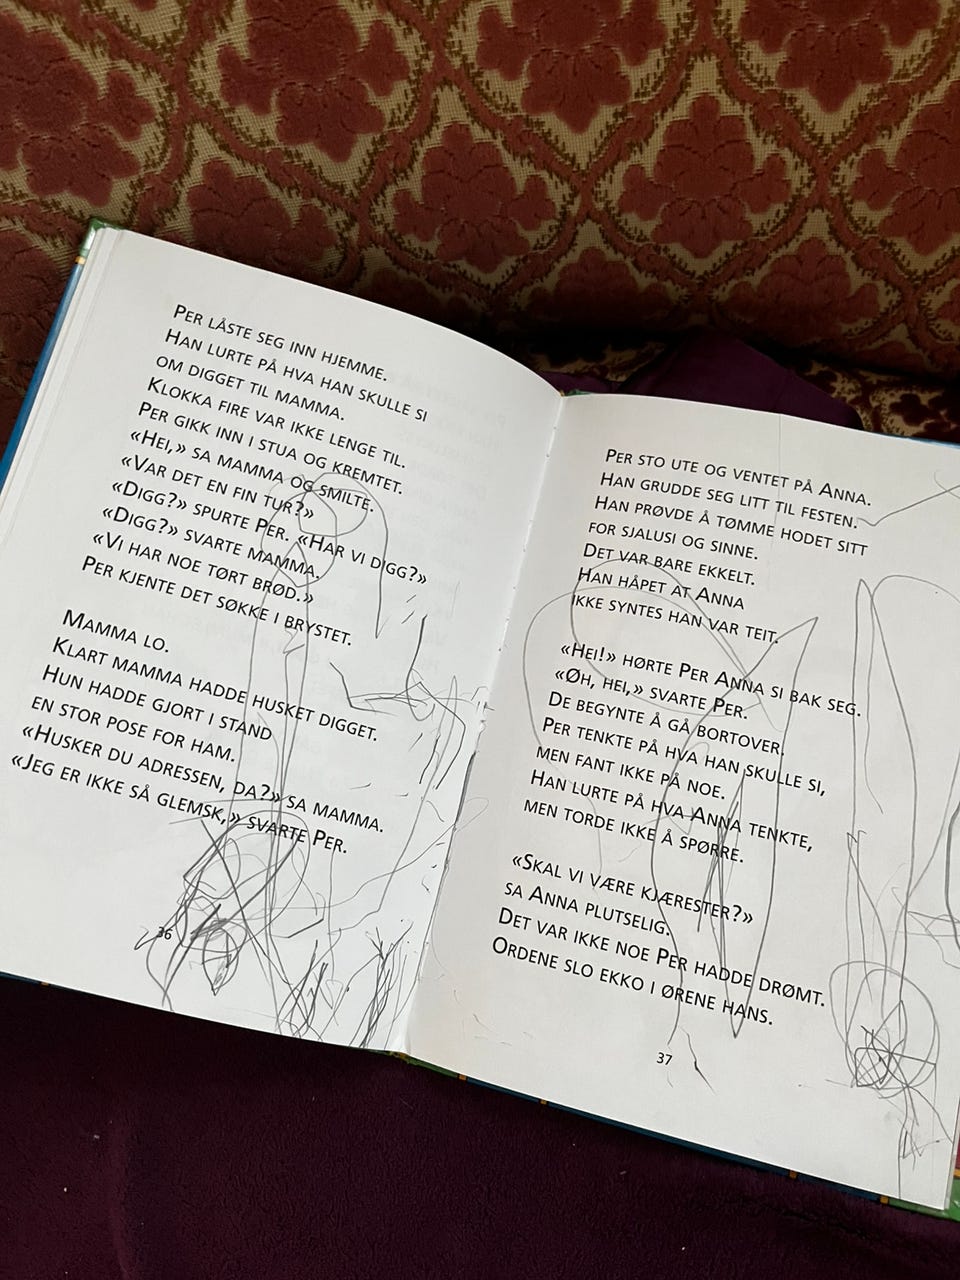 PER LÅSTE SEG INN HJEMME.
HAN LURTE PÅ HVA HAN SKULLE SI
OM DIGGET TIL MAMMA.
KLOKKA FIRE VAR IKKE LENGE TIL.
PER GIKK INN I STUA OG KREMTET.
«HEI,» SA MAMMA OG SMILTE.
«VAR DET EN FIN TUR?»
«DIGG?» SPURTE PER. «HAR VI DIGG?»
«DIGG?» SVARTE MAMMA.
«VI HAR NOE TØRT BRØD.»
PER KJENTE DET SØKKE I BRYSTET.
MAMMA LO.
KLART MAMMA HADDE HUSKET DIGGET.
HUN HADDE GJORT I STAND
EN STOR POSE FOR HAM.
«HUSKER DU ADRESSEN, DA?» SA MAMMA.
«JEG ER IKKE SÅ GLEMSK,» SVARTE PER.
36
PER STO UTE OG VENTET PÅ ANNA.
HAN GRUDDE SEG LITT TIL FESTEN.
HAN PRØVDE Å TØMME HODET SITT
FOR SJALUSI OG SINNE.
DET VAR BARE EKKELT.
HAN HÅPET AT ANNA
IKKE SYNTES HAN VAR TEIT.
«HEI!» HØRTE PER ANNA SI BAK SEG.
«ØH, HEI,» SVARTE PER.
DE BEGYNTE Å GÅ BORTOVER.
PER TENKTE PÅ HVA HAN SKULLE SI,
MEN FANT IKKE PÅ NOE.
HAN LURTE PÅ HVA ANNA TENKTE,
MEN TORDE IKKE Å SPØRRE.
«SKAL VI VÆRE KJÆRESTER?»
SA ANNA PLUTSELIG.
DET VAR IKKE NOE PER HADDE DRØMT.
ORDENE SLO EKKO I ØRENE HANS.
37